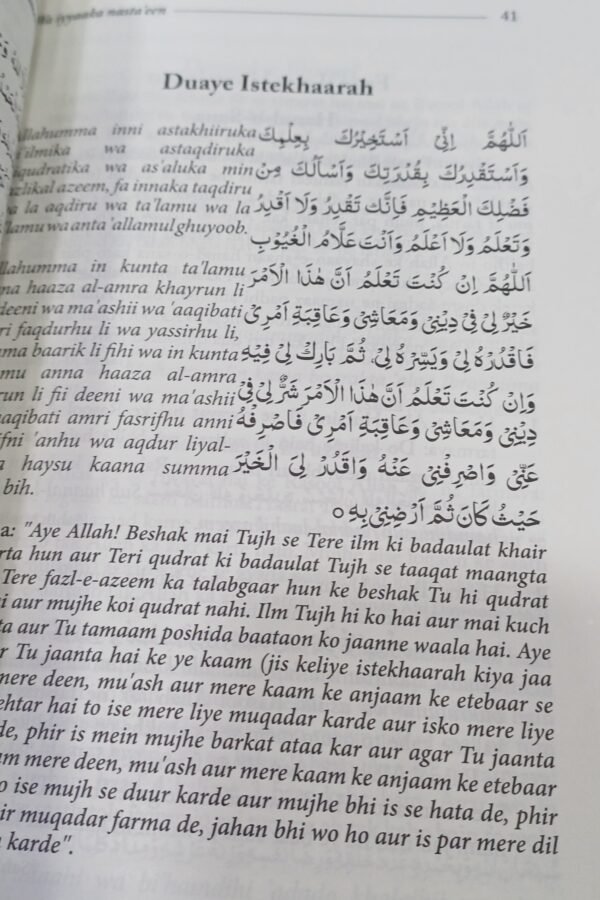 iyyaaka nasta'een 41
Duaye Istekhaarah
inni astakhiiruka
wa astaqdiruka
wa as'aluka min
azeem, fa innaka taqdiru
la aqdiru wa ta'lamu wa la
wa anta 'allamul ghuyoob.
in kunta ta'lamu
haaza al-amra khayrun li
deeni wa ma'ashii wa 'aaqibati
faqdurhu li wa yassirhu li,
baarik li fihi wa in kunta
anna haaza al-amra
li fii deeni wa ma'ashii
amri fasrifhu anni
'anhu wa aqdur liyal-
haysu kaana summa
bih.
اَللّٰهُمَّ اِنِّىْ اَسْتَخِيْرُكَ بِعِلْمِكَ
وَاَسْتَقْدِرُكَ بِقُدْرَتِكَ وَاَسْاَلُكَ مِنْ
فَضْلِكَ الْعَظِيْمِ فَاِنَّكَ تَقْدِرُ وَلَا اَقْدِرُ
وَتَعْلَمُ وَلَا اَعْلَمُ وَاَنْتَ عَلَّامُ الْغُيُوْبِ
اَللّٰهُمَّ اِنْ كُنْتَ تَعْلَمُ اَنَّ هٰذَا الْاَمْرَ
خَيْرٌ لِىْ فِىْ دِيْنِىْ وَمَعَاشِىْ وَعَاقِبَةِ اَمْرِىْ
فَاقْدُرْهُ لِىْ وَيَسِّرْهُ لِىْ، ثُمَّ بَارِكْ لِىْ فِيْهِ
وَاِنْ كُنْتَ تَعْلَمُ اَنَّ هٰذَا الْاَمْرَ شَرٌّ لِىْ فِىْ
دِيْنِىْ وَمَعَاشِىْ وَعَاقِبَةِ اَمْرِىْ فَاصْرِفْهُ
عَنِّىْ وَاصْرِفْنِىْ عَنْهُ وَاقْدُرْ لِىَ الْخَيْرَ
حَيْثُ كَانَ ثُمَّ اَرْضِنِىْ بِهٖ ○
"Aye Allah! Beshak mai Tujh se Tere ilm ki badaulat khair
hun aur Teri qudrat ki badaulat Tujh se taaqat maangta
Tere fazl-e-azeem ka talabgaar hun ke beshak Tu hi qudrat
aur mujhe koi qudrat nahi. Ilm Tujh hi ko hai aur mai kuch
aur Tu tamaam poshida baataon ko jaanne waala hai. Aye
Tu jaanta hai ke ye kaam (jis keliye istekhaarah kiya jaa
mere deen, mu'ash aur mere kaam ke anjaam ke etebaar se
hai to ise mere liye muqadar karde aur isko mere liye
phir is mein mujhe barkat ataa kar aur agar Tu jaanta
mere deen, mu'ash aur mere kaam ke anjaam ke etebaar
ise mujh se duur karde aur mujhe bhi is se hata de, phir
muqadar farma de, jahan bhi wo ho aur is par mere dil
karde".